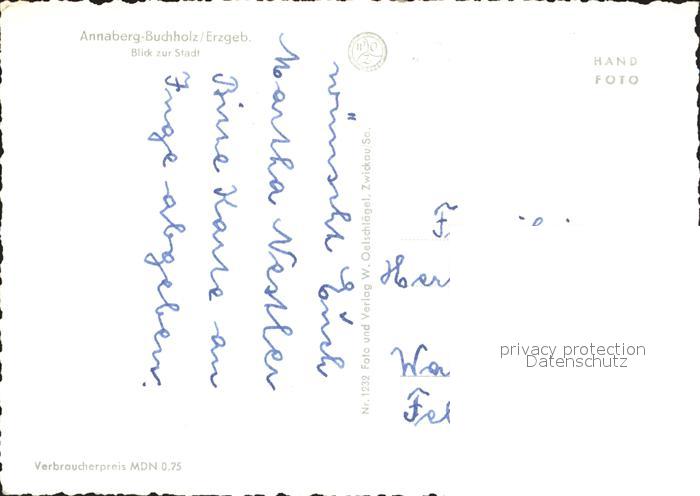 Annaberg-Buchholz/Erzgeb.
Blick zur Stadt
HAND
FOTO
wünscht Euch
Martha Nestler
Bitte Karte an
Inge abgeben.
Nr. 1232 Foto und Verlag W. Oelschlägel, Zwickau/Sa.
F.
Her
Wa
Fel
privacy protection
Datenschutz
Verbraucherpreis MDN 0,75